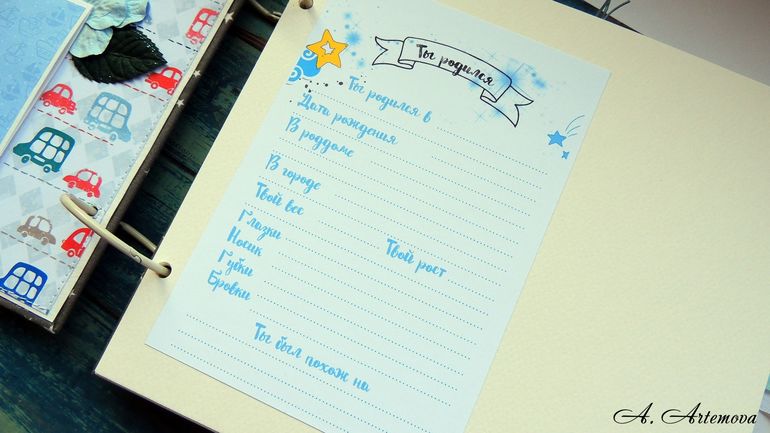 Ты родился
Ты родился в
Дата рождения
В роддоме
В городе
Твой вес
Твой рост
Глазки
Носик
Губки
Бровки
Ты был похож на
A. Artemova